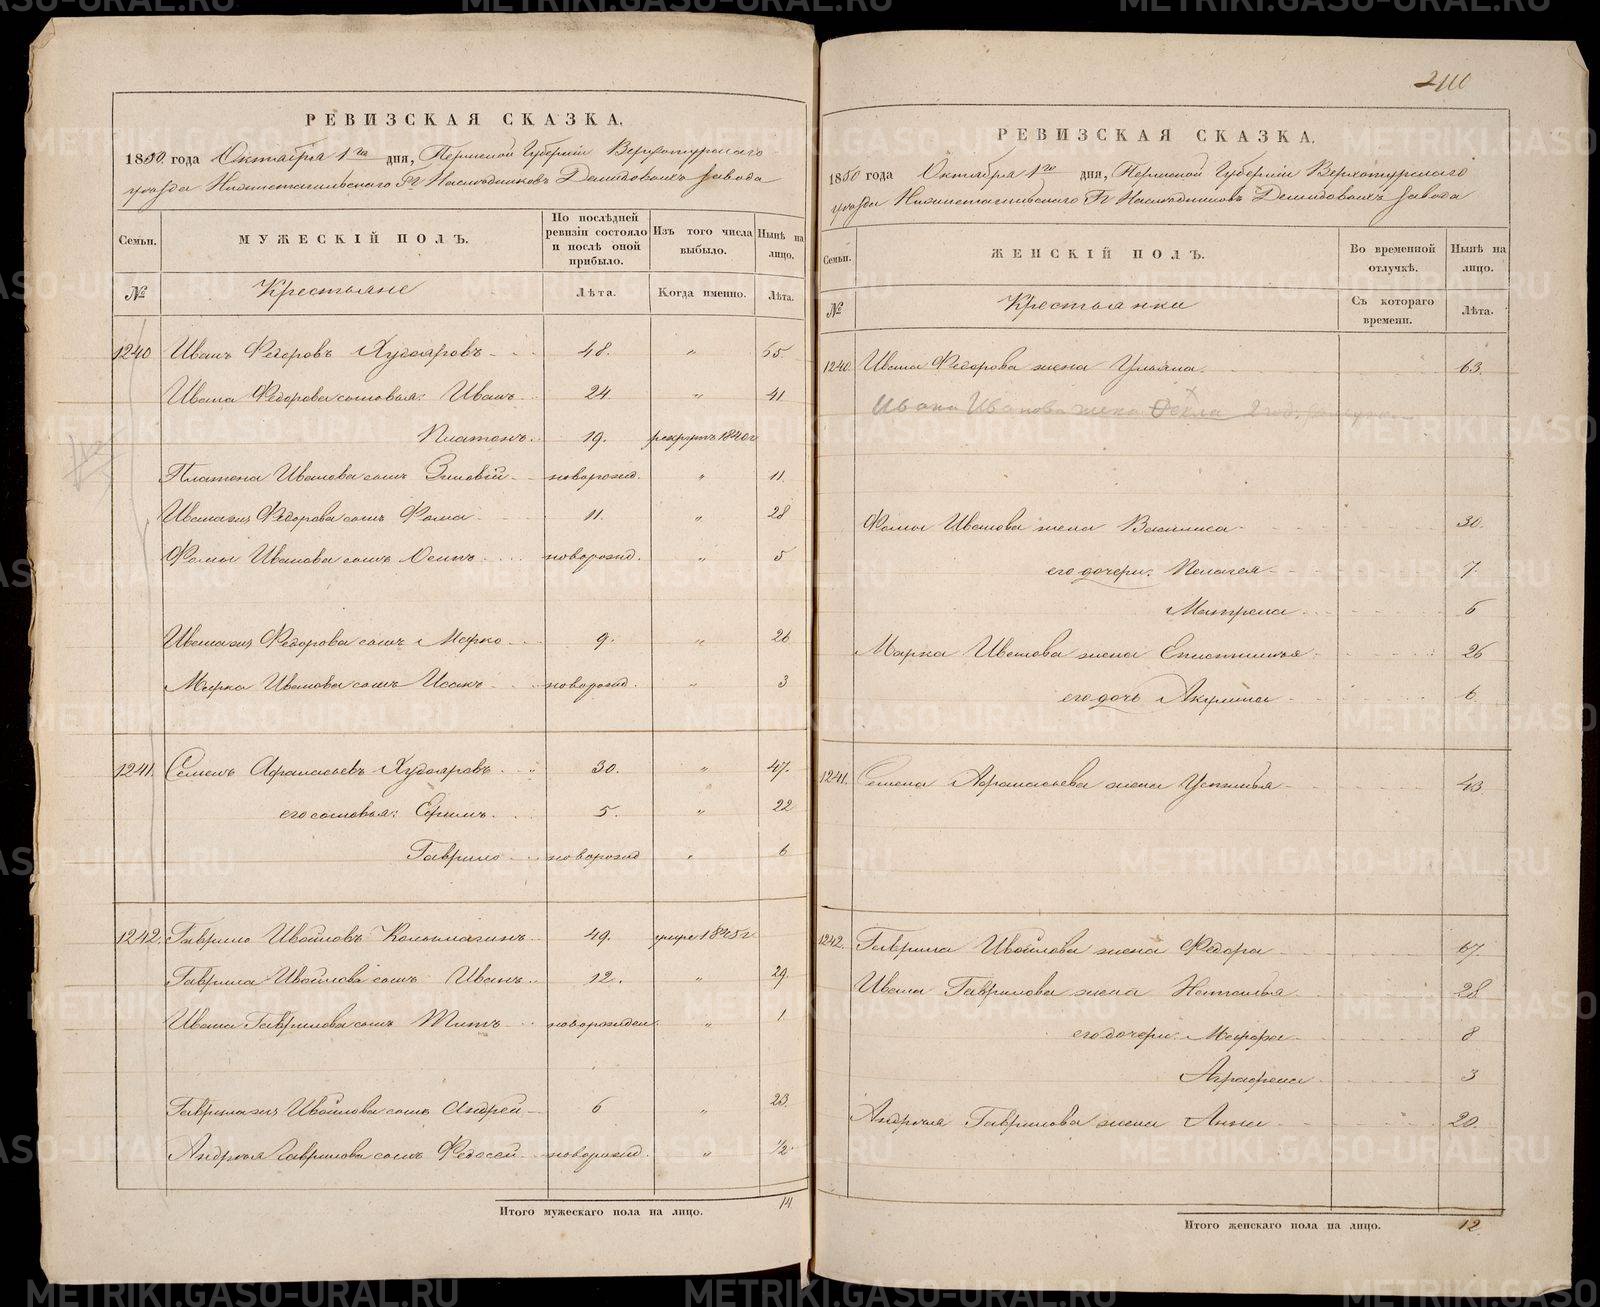 РЕВИЗСКАЯ СКАЗКА.
1850 года Октября 1го дня, Пермской Губернiи Верхотурскаго
уѣзда Нижнетагильскаго Гг Наслѣдниковъ Демидовыхъ завода
Семьи.
МУЖЕСКIЙ ПОЛЪ.
По послѣдней ревизiи состояло и послѣ оной прибыло.
Изъ того числа выбыло.
Нынѣ на лицо.
№
Крестьяне
Лѣта.
Когда именно.
Лѣта.
1240 Иванъ Федоровъ Худояровъ 48. " 65
Ивана Федорова сыновья: Иванъ 24 " 41
Платонъ. 19. рекрутъ 1840 г
Платона Иванова сынъ Зиновiй новорожд. " 11
Иванажъ Федорова сынъ Фома 11. " 28
Фомы Иванова сынъ Осипъ новорожд. " 5
Иванажъ Федорова сынъ Марко 9. " 26
Марка Иванова сынъ Исакъ новорожд. " 3
1241. Семенъ Афанасьевъ Худояровъ 30. " 47.
его сыновья: Ефимъ. 5. " 22
Гаврило новорожд " 6
1242. Гаврило Ивойловъ 49. умре 1845 г
Гаврила Ивойлова сынъ Иванъ 12. " 29
Ивана Гаврилова сынъ Титъ новорожден. " 1
Гаврилажъ Ивойлова сынъ Андрей 6 " 23
Андрея Гаврилова сынъ Федосей новорожд. " 1/2
Итого мужескаго пола на лицо. 14
РЕВИЗСКАЯ СКАЗКА.
1850 года Октября 1го дня, Пермской Губернiи Верхотурскаго
уѣзда Нижнетагильскаго Гг Наслѣдниковъ Демидовыхъ завода
Семьи.
ЖЕНСКIЙ ПОЛЪ.
Во временной отлучкѣ.
Нынѣ на лицо.
№
Крестьянки
Съ котораго времени.
Лѣта.
1240. Ивана Федорова жена Ульяна. 63.
Ивана Иванова жена
Фомы Иванова жена Василиса 30.
его дочери: Пелагея 7.
Матрена 5
Марка Иванова жена 26
его дочь Акулина 6
1241. Семена Афанасьева жена Устинья 43
1242. Гаврила Ивойлова жена Федора 67.
Ивана Гаврилова жена Наталья 28
его дочери: Марфа 8
Аграфена 3
Андрея Гаврилова жена Анна 20.
Итого женскаго пола на лицо. 12
METRIKI.GASO-URAL.RU